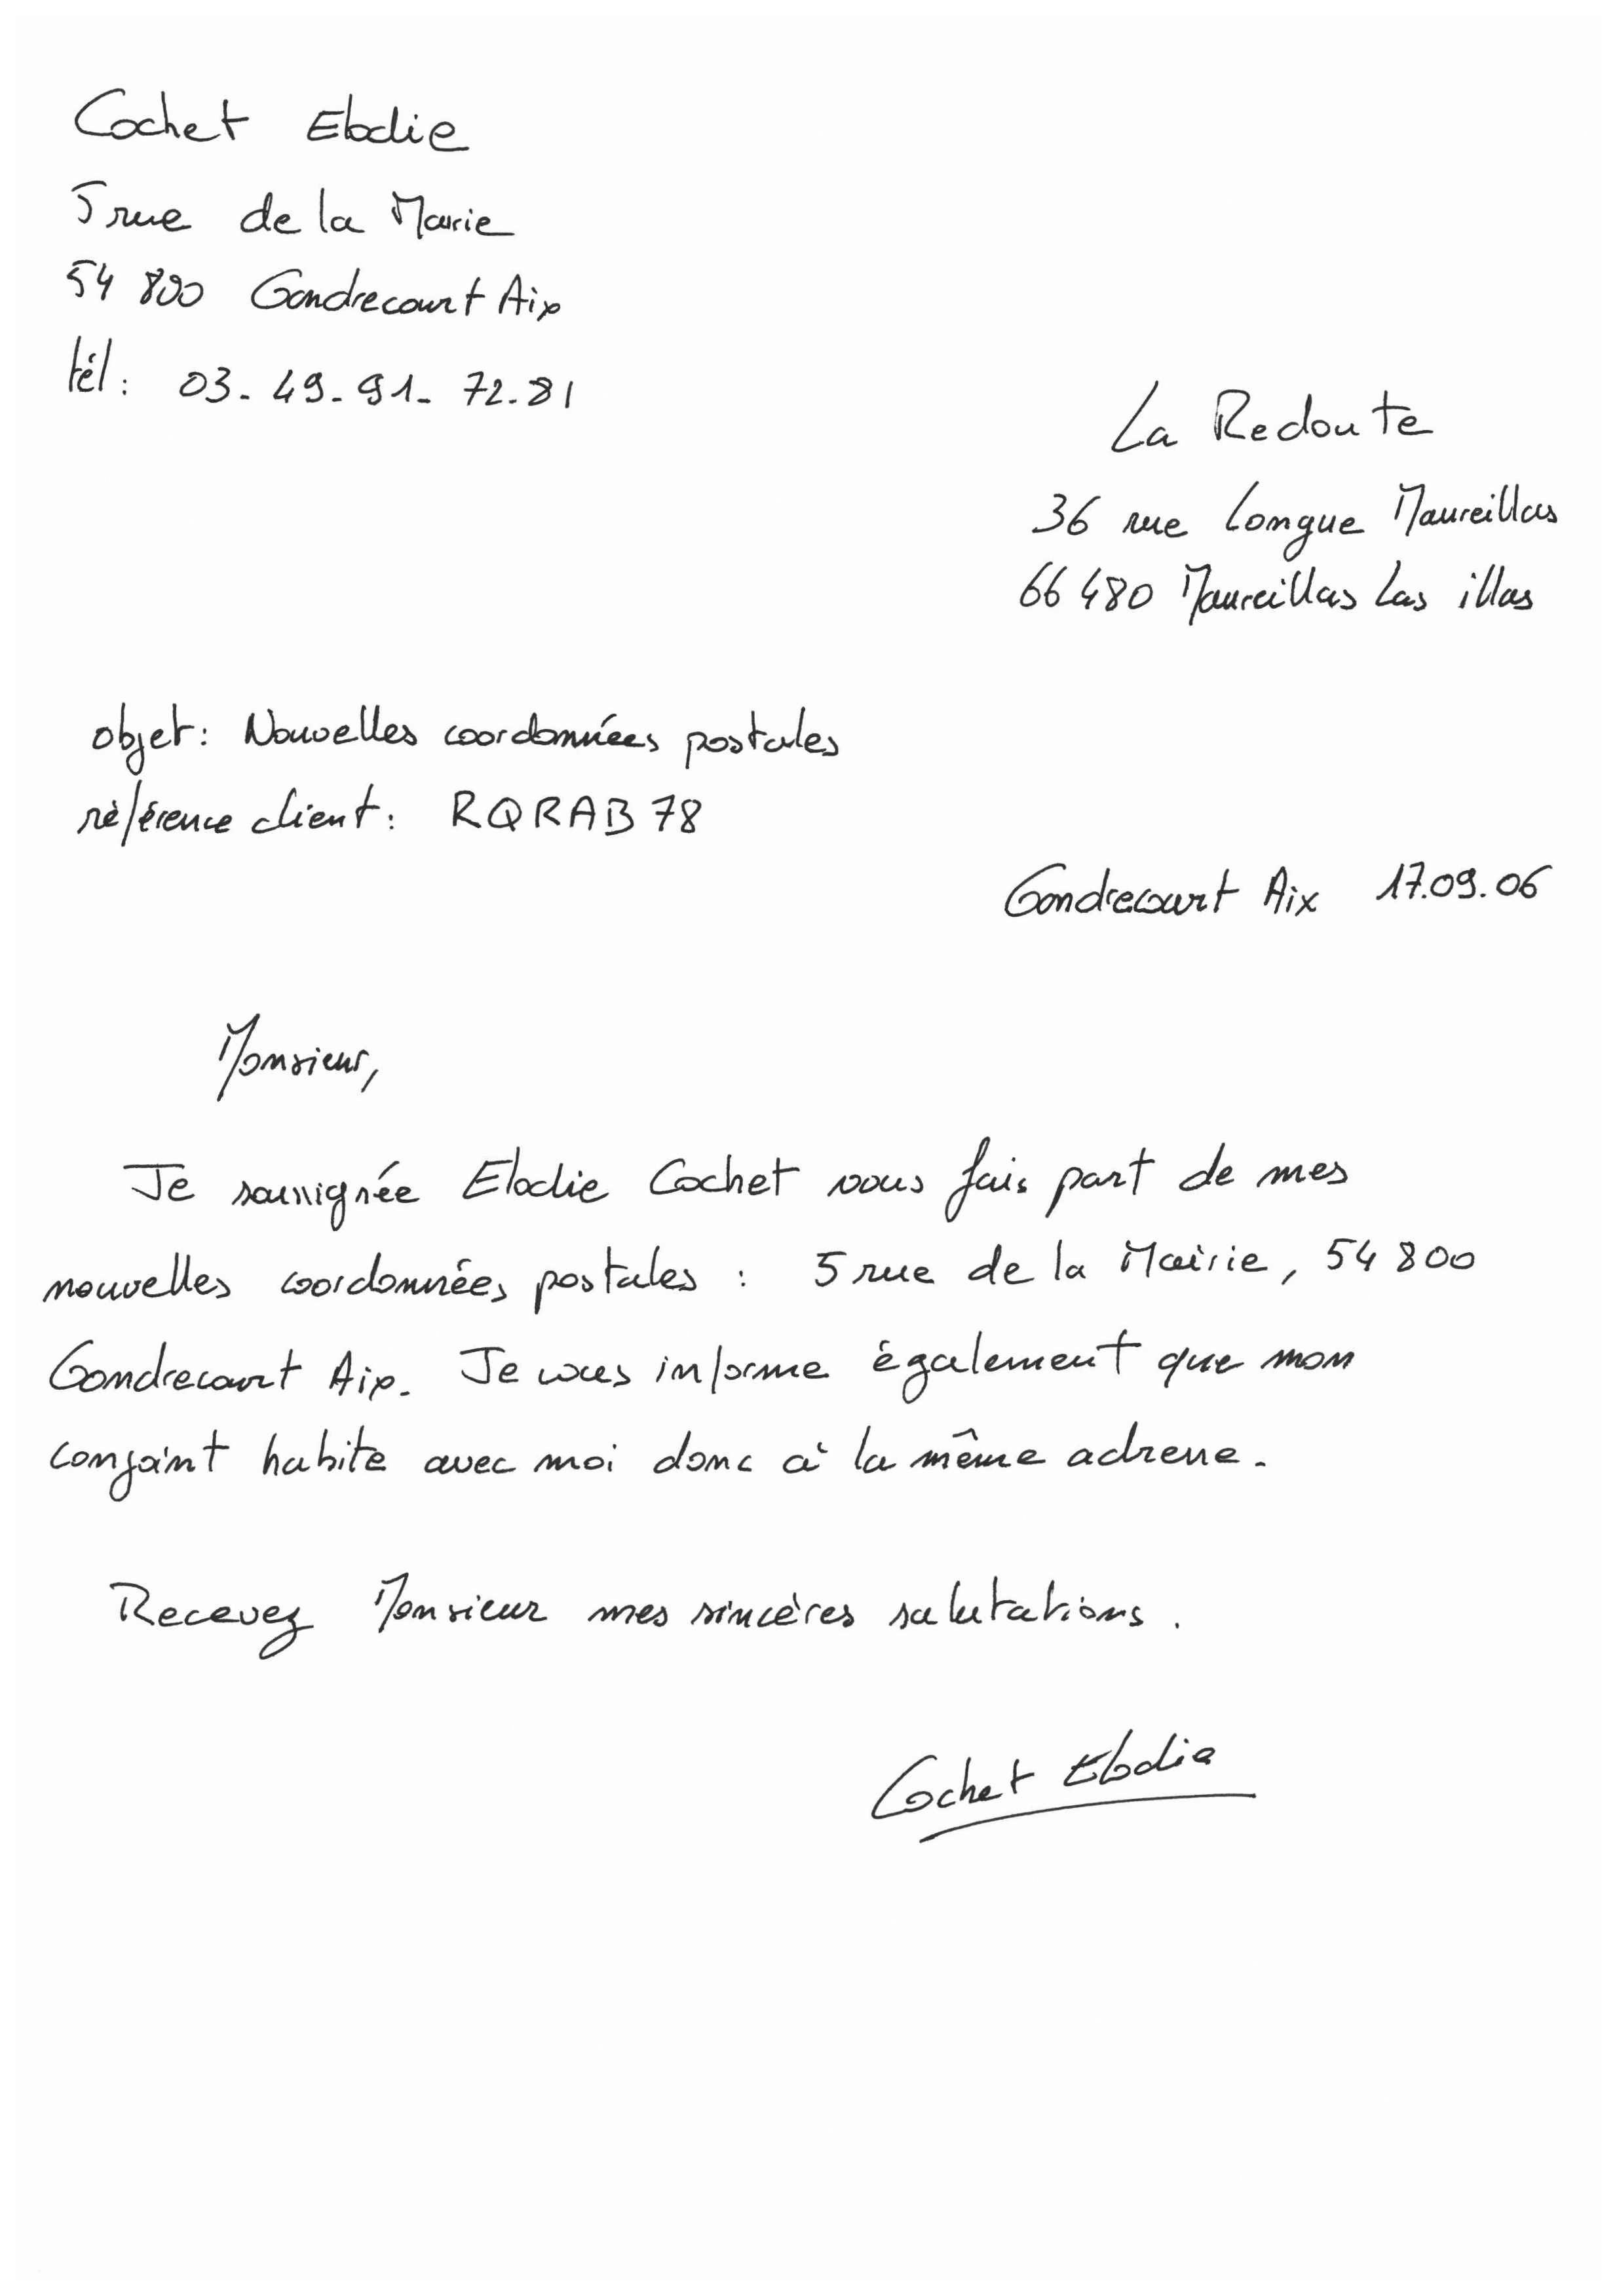 Cochet Elodie
5 rue de la Mairie
54 800 Gondrecourt Aix
tél : 03-49-91-72-81
La Redoute
36 rue Longue Maureillas
66 480 Maureillas Las illas
objet : Nouvelles coordonnées postales
référence client : RQRAB78
Gondrecourt Aix 17.09.06
Monsieur,
Je soussignée Elodie Cochet vous fais part de mes
nouvelles coordonnées postales : 5 rue de la Mairie, 54 800
Gondrecourt Aix. Je vous informe également que mon
conjoint habite avec moi donc à la même adresse.
Recevez Monsieur mes sincères salutations.
Cochet Elodie